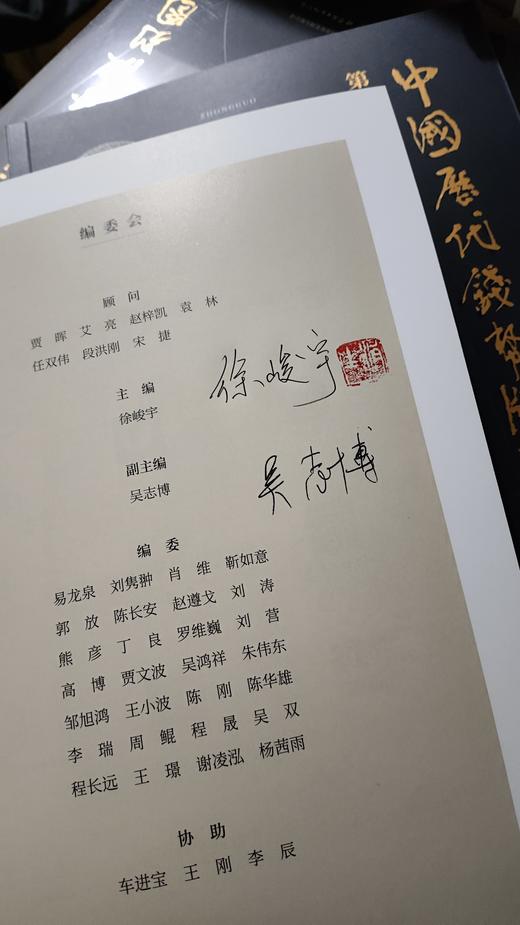 ZHONGGUO
第
中國歷代錢幣
编委会
顾问
贾晖 艾亮 赵梓凯 袁林
任双伟 段洪刚 宋捷
主编
徐峻宇
徐峻宇
副主编
吴志博
吴志博
编委
易龙泉 刘隽翀 肖维 靳如意
郭放 陈长安 赵遵戈 刘涛
熊彦 丁良 罗维巍 刘营
高博 贾文波 吴鸿祥 朱伟东
邹旭鸿 王小波 陈刚 陈华雄
李瑞 周鲲 程晟 吴双
程长远 王璟 谢凌泓 杨茜雨
协助
车进宝 王刚 李辰